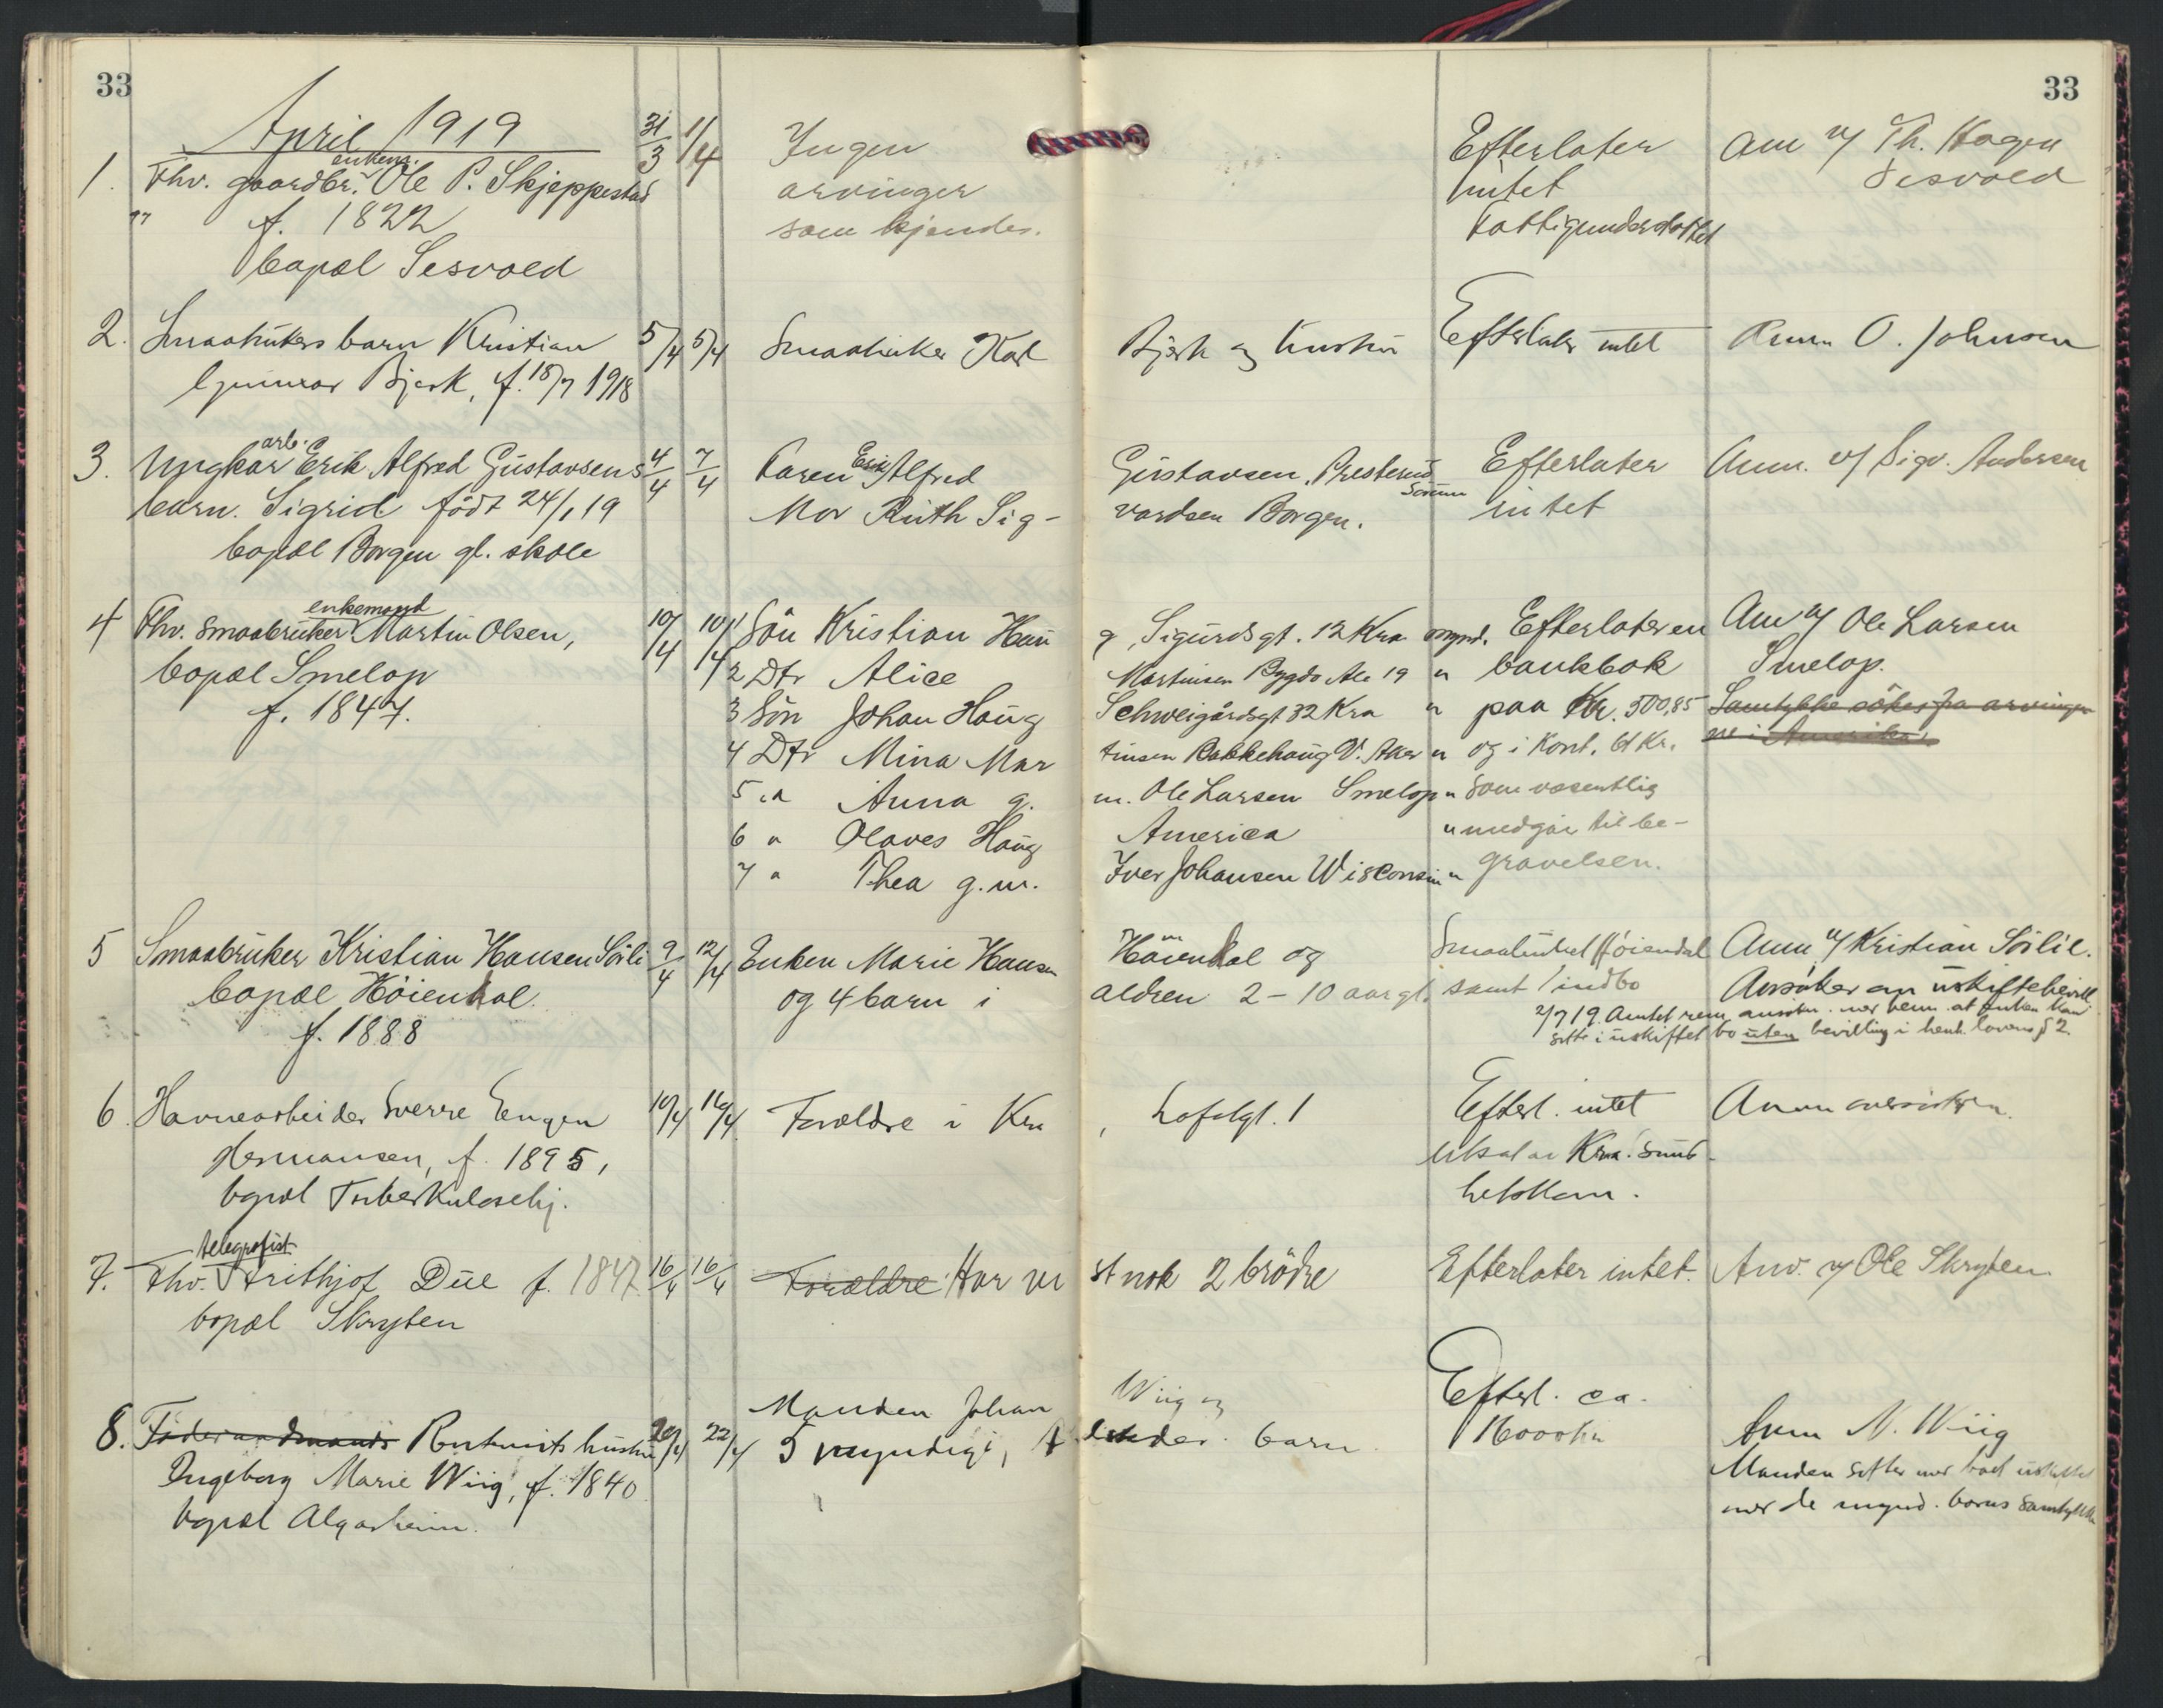 33
33
April 1919
1. Fhv. gaardbr. enkem. Ole P. Skjeppestad 31/3 1/4 Ingen Efterlater Anm v/ Th. Hagen
" f. 1822 arvinger intet Sesvold
bopæl Sesvold som kjendes. Fattigunderstøttet
2. Smaabrukers barn Kristian 5/4 5/4 Smaabruker Karl Bjerk og hustru Efterlater intet Anm O. Johnsen
Gunnar Bjerk, f. 18/7 1918
3. Ungkar arb. Erik Alfred Gustavsens 4/4 7/4 Faren Erik Alfred Gustavsen, Presterud Sørum Efterlater Anm. v/ Sigv. Andersen
barn. Sigrid født 24/1 19 Mor Ruth Sig- vardsen Borgen. intet
bopæl Borgen gl. skole
4 Fhv. smaabruker enkemand Martin Olsen, 10/4 10/4 1 Søn Kristian Hau g, Sigurdsgt. 12 Kra mynd. Efterlater en Anm v/ Ole Larsen
bopæl Smelop 2 Dtr Alice Martinsen Bygdø Ale 19 " bankbok Smelop.
f. 1847. 3 Søn Johan Haug Schweigårdsgt 32 Kra " paa Kr. 500,85 Samtykke søkes fra arvinger
4 Dtr Mina Mar tinsen Bakkehaug V. Aker " og i Kont. 61 Kr. ne i Amerika.
5 " Anna g. m. Ole Larsen Smelop " som væsentlig
6 " Olaves Haug America " medgår til be-
7 " Thea g.m. Iver Johansen Wisconsin " gravelsen.
5 Smaabruker Kristian Hansen Sørli 9/4 12/4 Enken Marie Hansen Høiendal og Smaabruket Høiendal Anm. v/ Kristian Sørlie.
bopæl Høiendal. og 4 barn i alderen 2-10 aar gl. samt indbo Ansøker om uskiftebevill.
f. 1888 2/7 19. Amtet rem ansøkn. med bem. at enken kan
sitte i uskiftet bo uten bevilling i henh. lovens § 2.
6 Havnearbeider Sverre Eugen 10/4 16/4 Forældre i Kra, Lofotgt. 1 Efterl. intet Anm
Hermansen, f. 1895, Kra. Sund-
bopæl Tuberkulosehj. hetskom.
7. Fhv. telegrafist Frithjof Due f. 1847 16/4 16/4 Forældre Har vi st nok 2 brødre Efterlater intet. Anv. v/ Ole Skryten
bopæl Skryten
8. Føderaadmands Rentenists hustru 20/4 22/4 Manden Johan Wiig og Efterl. ca. Anm N. Wiig
Ingeborg Marie Wiig, f. 1840 5 myndige, barn 16000 kr Manden sitter med boet uskiftet
bopæl Algarheim. med de mynd. barns samtykke